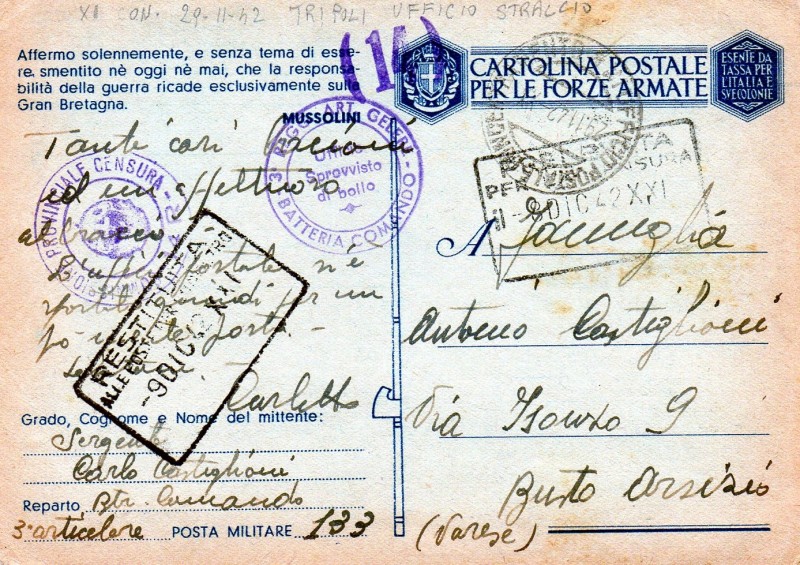 XI CON. 29-11-42 TRIPOLI UFFICIO STRALCIO
Affermo solennemente, e senza tema di esse-
re smentito nè oggi nè mai, che la responsa-
bilità della guerra ricade esclusivamente sulla
Gran Bretagna.
MUSSOLINI
(1
CARTOLINA POSTALE
PER LE FORZE ARMATE
ESENTE DA
TASSA PER
L'ITALIA E
SVE COLONIE
3 REGG. ART. CELERE
BATTERIA COMANDO
Ufficio
Sprovvisto
di bollo
PROVINCIALE CENSURA
Tanti cari bacioni
ed un affettuoso
abbraccio
L'ufficio postale si è
spostato quindi per un
po' niente posta
Carletto
RESTITUITA
ALLE POSTE
-9 DIC 42 XXI
PER CENSURA
-9 DIC 42 XXI
A Famiglia
Antonio Castiglioni
Via Isonzo 9
Busto Arsizio
(Varese)
Grado, Cognome e Nome del mittente:
Sergente
Carlo Castiglioni
Reparto Btr. Comando
3° articelere POSTA MILITARE 133